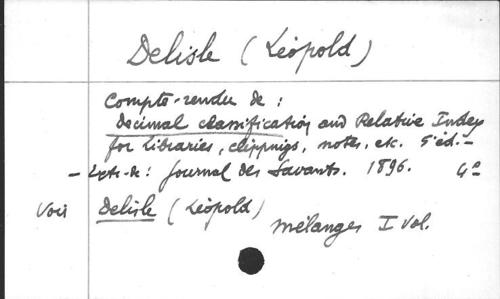 Delisle (Léopold)
Compte-rendu de :
Decimal classification and Relative Index
for libraries, clippings, notes, etc. 5e éd. -
- Extr. de : Journal des Savants. 1896. 4°
Voir Delisle (Léopold)
Mélanges I vol.